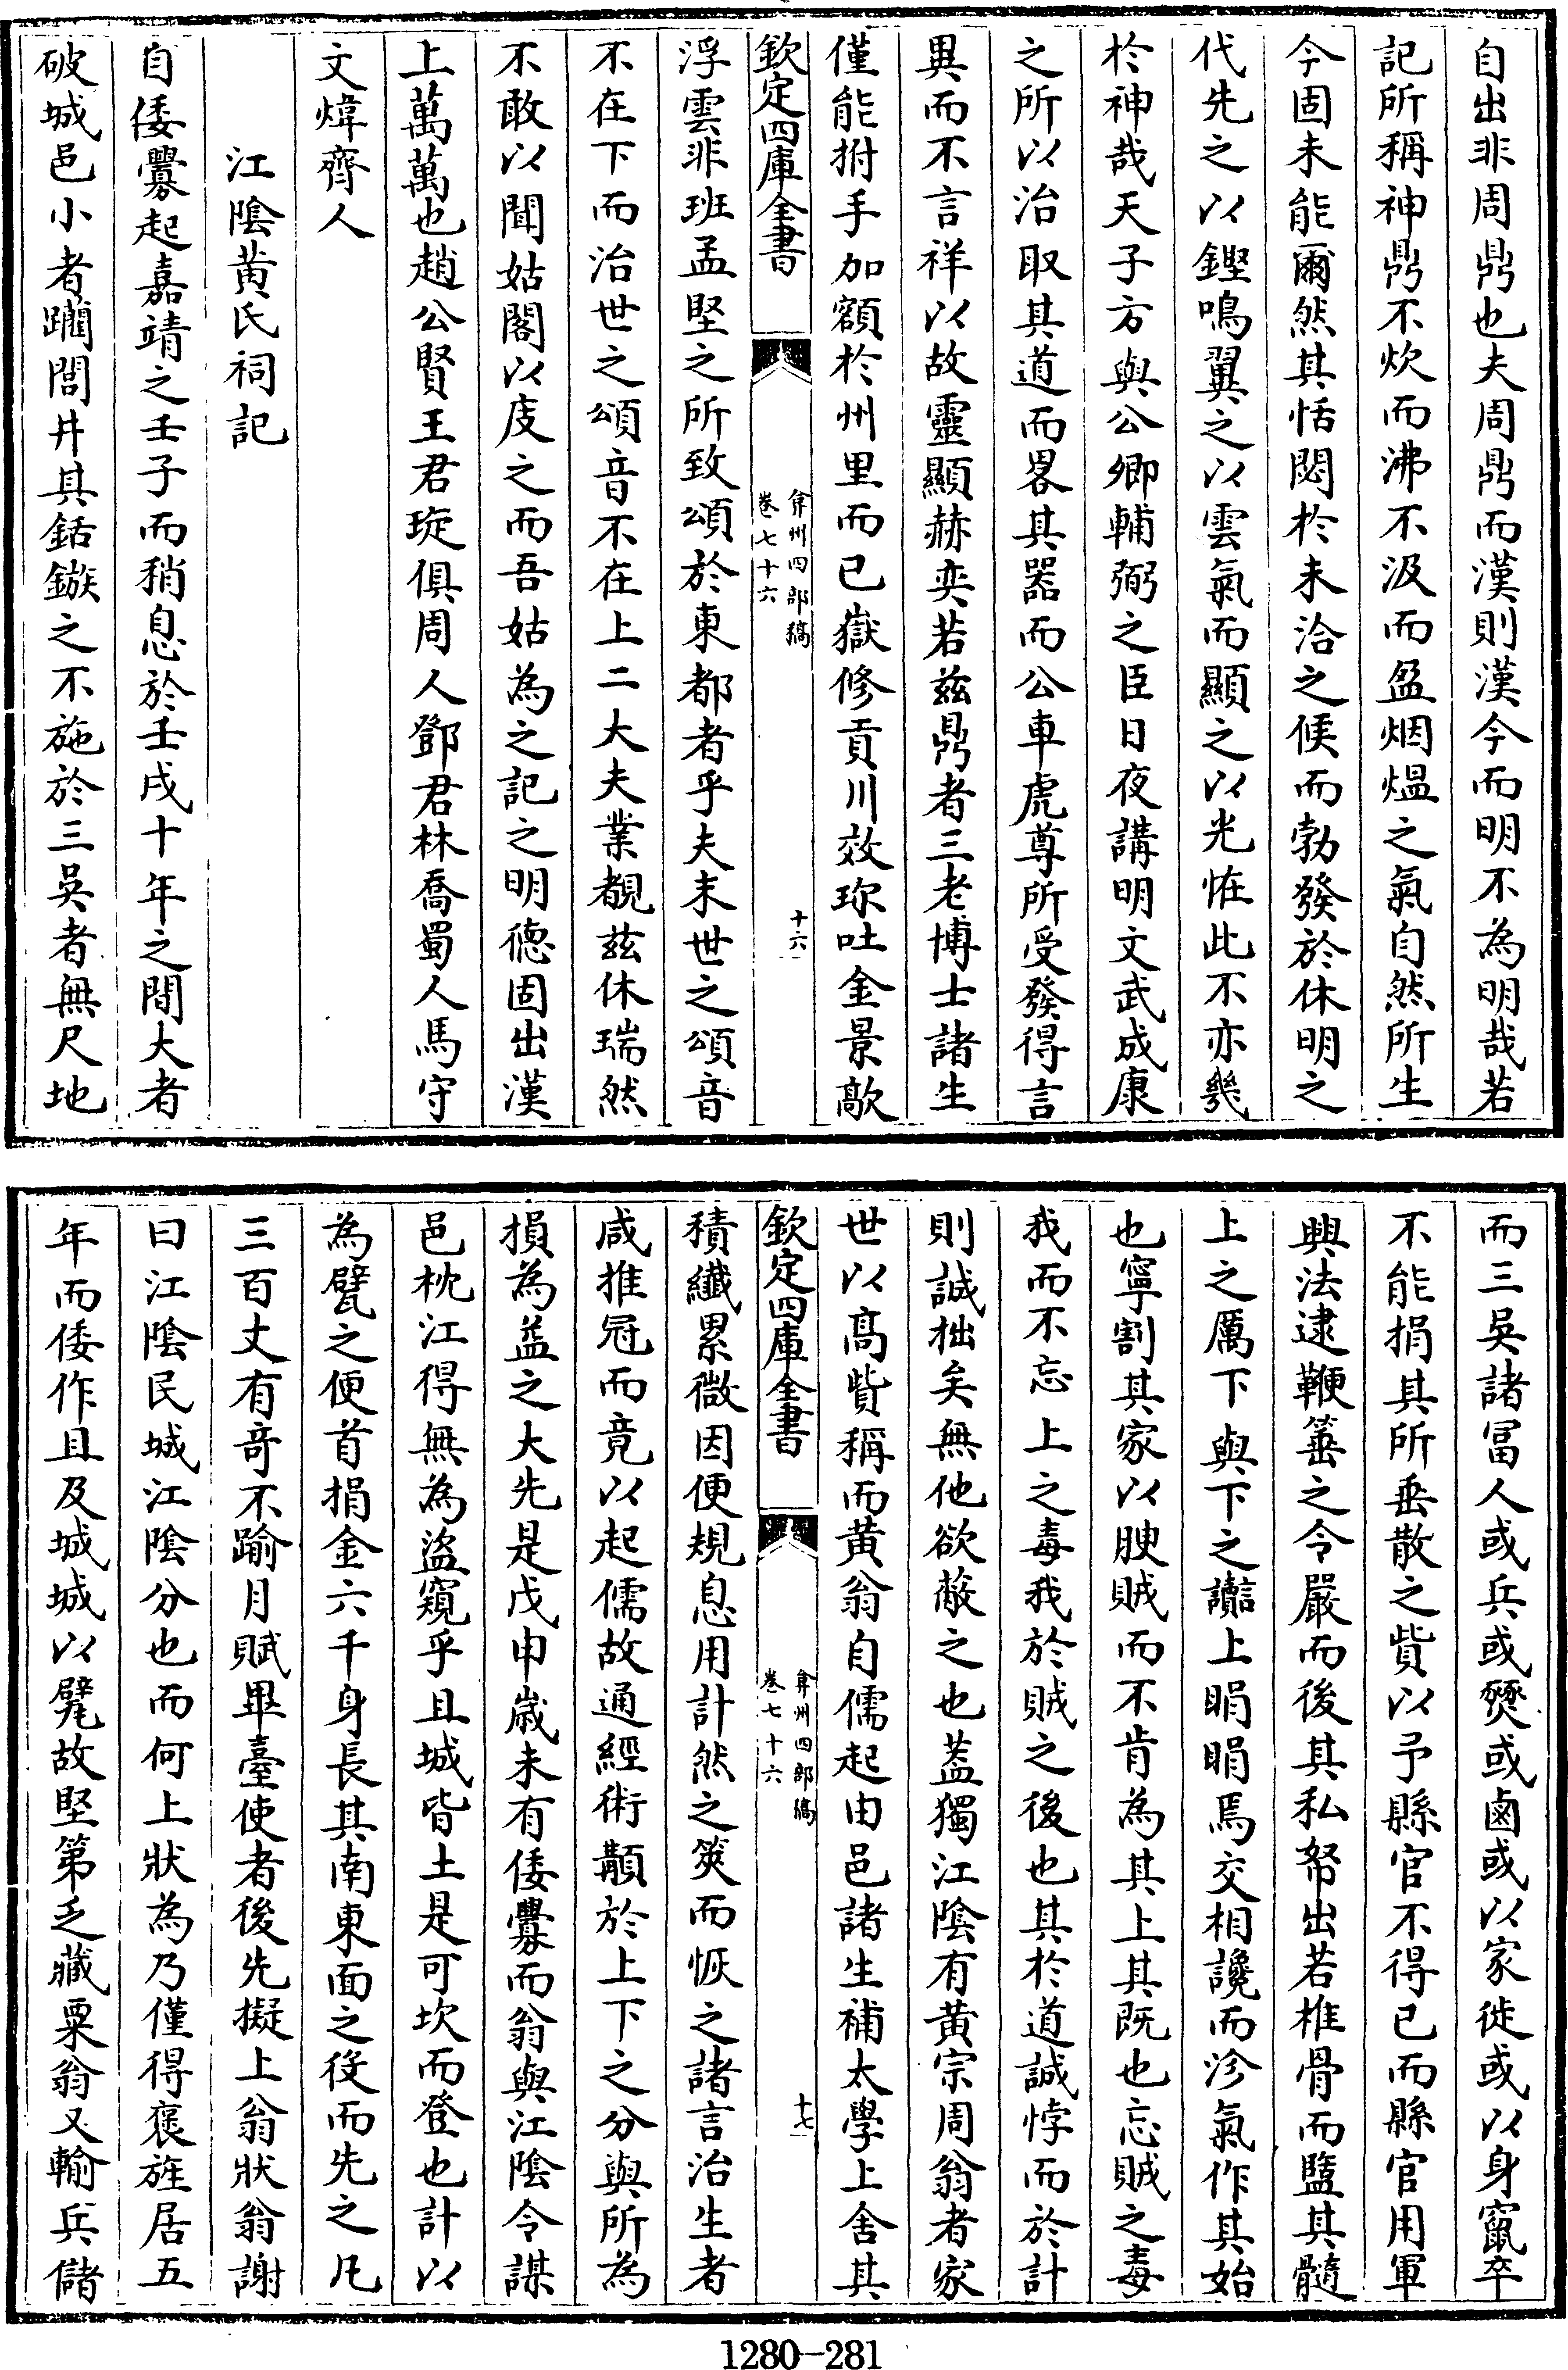 自出非周鼎也夫周鼎而漢則漢今而明不為明哉若
記所稱神鼎不炊而沸不汲而盈烟熅之氣自然所生
今固未能爾然其恬閟於未洽之候而勃發於休明之
代先之以鏗鳴翼之以雲氣而顯之以光怪此不亦幾
於神哉天子方與公卿輔弼之臣日夜講明文武成康
之所以治取其道而畧其器而公車虎尊所受發得言
異而不言祥以故靈顯赫奕若兹鼎者三老博士諸生
僅能拊手加額於州里而已嶽修貢川效珍吐金景歊
欽定四庫全書
弇州四部稿
卷七十六
十六
浮雲非班孟堅之所致頌於東都者乎夫末世之頌音
不在下而治世之頌音不在上二大夫業覩兹休瑞然
不敢以聞姑閣以庋之而吾姑為之記之明德固出漢
上萬萬也趙公賢王君琁俱周人鄧君林喬蜀人馬守
文煒齊人
江隂黄氏祠記
自倭釁起嘉靖之壬子而稍息於壬戌十年之間大者
破城邑小者躪閭井其銛鏃之不施於三吳者無尺地
而三吳諸冨人或兵或燹或鹵或以家徙或以身竄卒
不能捐其所垂散之貲以予縣官不得已而縣官用軍
興法逮鞭箠之令嚴而後其私帑出若椎骨而盬其髓
上之厲下與下之讟上睊睊焉交相讒而沴氣作其始
也寧割其家以腴賊而不肯為其上其既也忘賊之毒
我而不忘上之毒我於賊之後也其於道誠悖而於計
則誠拙矣無他欲蔽之也葢獨江隂有黄宗周翁者家
世以髙貲稱而黄翁自儒起由邑諸生補太學上舍其
欽定四庫全書
弇州四部稿
卷七十六
十七
積纎累微因便規息用計然之筴而恢之諸言治生者
咸推冠而竟以起儒故通經術顓於上下之分與所為
損為益之大先是戊申嵗未有倭釁而翁與江隂令謀
邑枕江得無為盜窺乎且城皆土是可坎而登也計以
為甓之便首捐金六千身長其南東面之役而先之凡
三百丈有竒不踰月賦畢臺使者後先擬上翁狀翁謝
曰江隂民城江隂分也而何上狀為乃僅得褒旌居五
年而倭作且及城城以甓故堅第乏藏粟翁又輸兵儲
1280-281